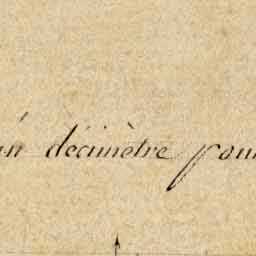 un décimètre pour